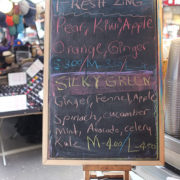 FRESH ZING
Pear, Kiwi, Apple
Orange, Ginger
SILKY GREEN
Ginger, Fennel, Apple
Spinach, cucumber
Mint, Avocado, celery
Kale M-400/ L-450